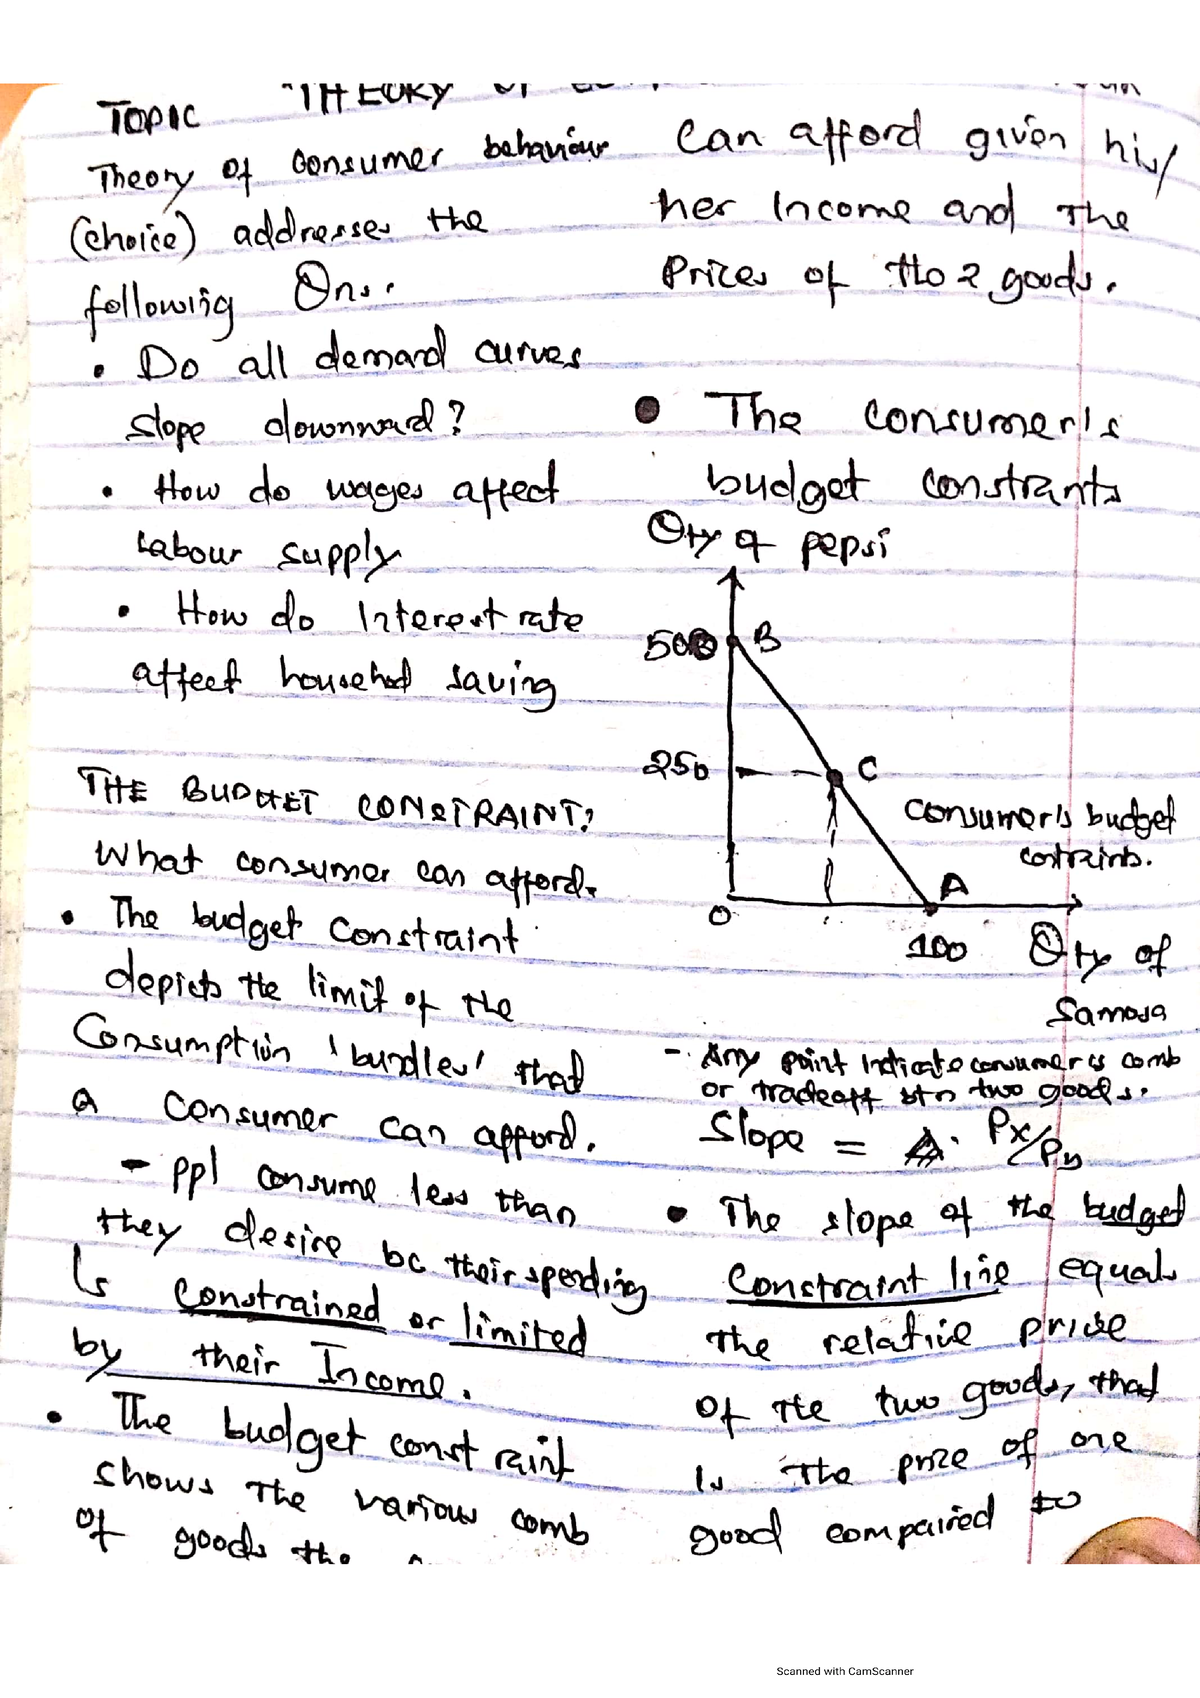 TOPIC "THEORY OF
Theory of consumer behaviour
(choice) addresses the
following Qns.
• Do all demand curves
slope downward?
• How do wages affect
Labour supply
• How do Interest rate
affect household saving
THE BUDGET CONSTRAINT:
What consumer can afford.
• The budget Constraint
depicts the limit of the
Consumption 'bundles' that
a consumer can afford.
- ppl consume less than
they desire bc their spending
is constrained or limited
by their Income.
• The budget constraint
shows the various comb
of goods the
can afford given his/
her Income and The
Prices of the 2 goods.
• The consumer's
budget constrants
Qty of pepsi
500 B
250 C
Consumer's budget
0 A
100 Qty of
Samosa
- Any point Indicate consumer's comb
or tradeoff btn two goods.
Slope = Px/Py
• The slope of the budget
constraint line equals
the relative price
of the two goods, that
is the price of one
good compaired to
Scanned with CamScanner